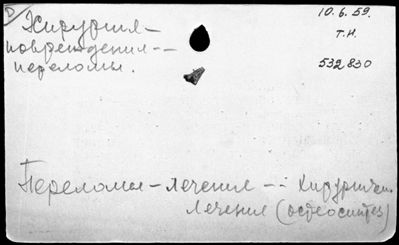 Хирургия –
повреждения --
переломы.
10.6.59.
Т.Н.
532.830
Переломы – лечение -- хирургич.
лечения (остеосинтез)